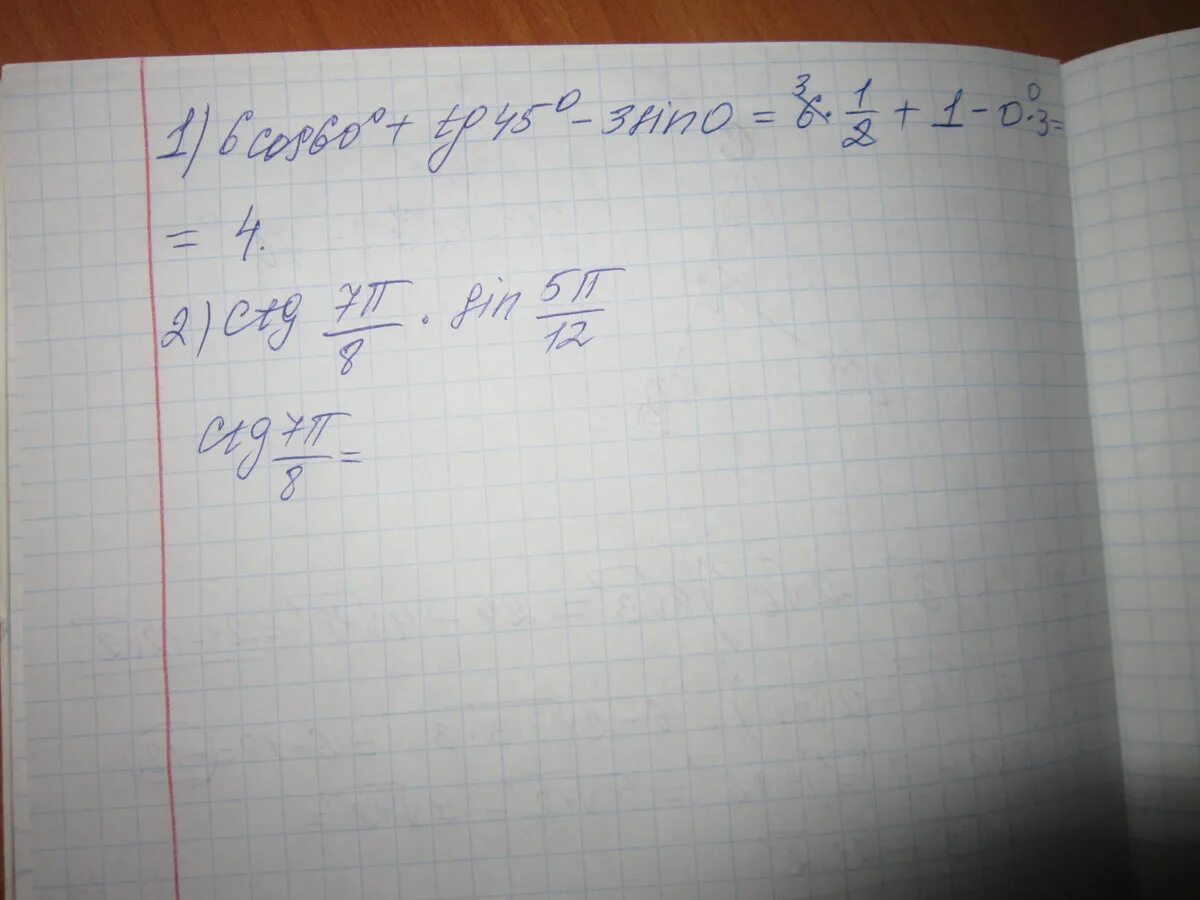 1) 6cos60° + tg45° - 3sin0 = 6̸³ · 1/2 + 1 - 0⁰·3 =
= 4.
2) ctg 7π/8 · sin 5π/12
ctg 7π/8 =